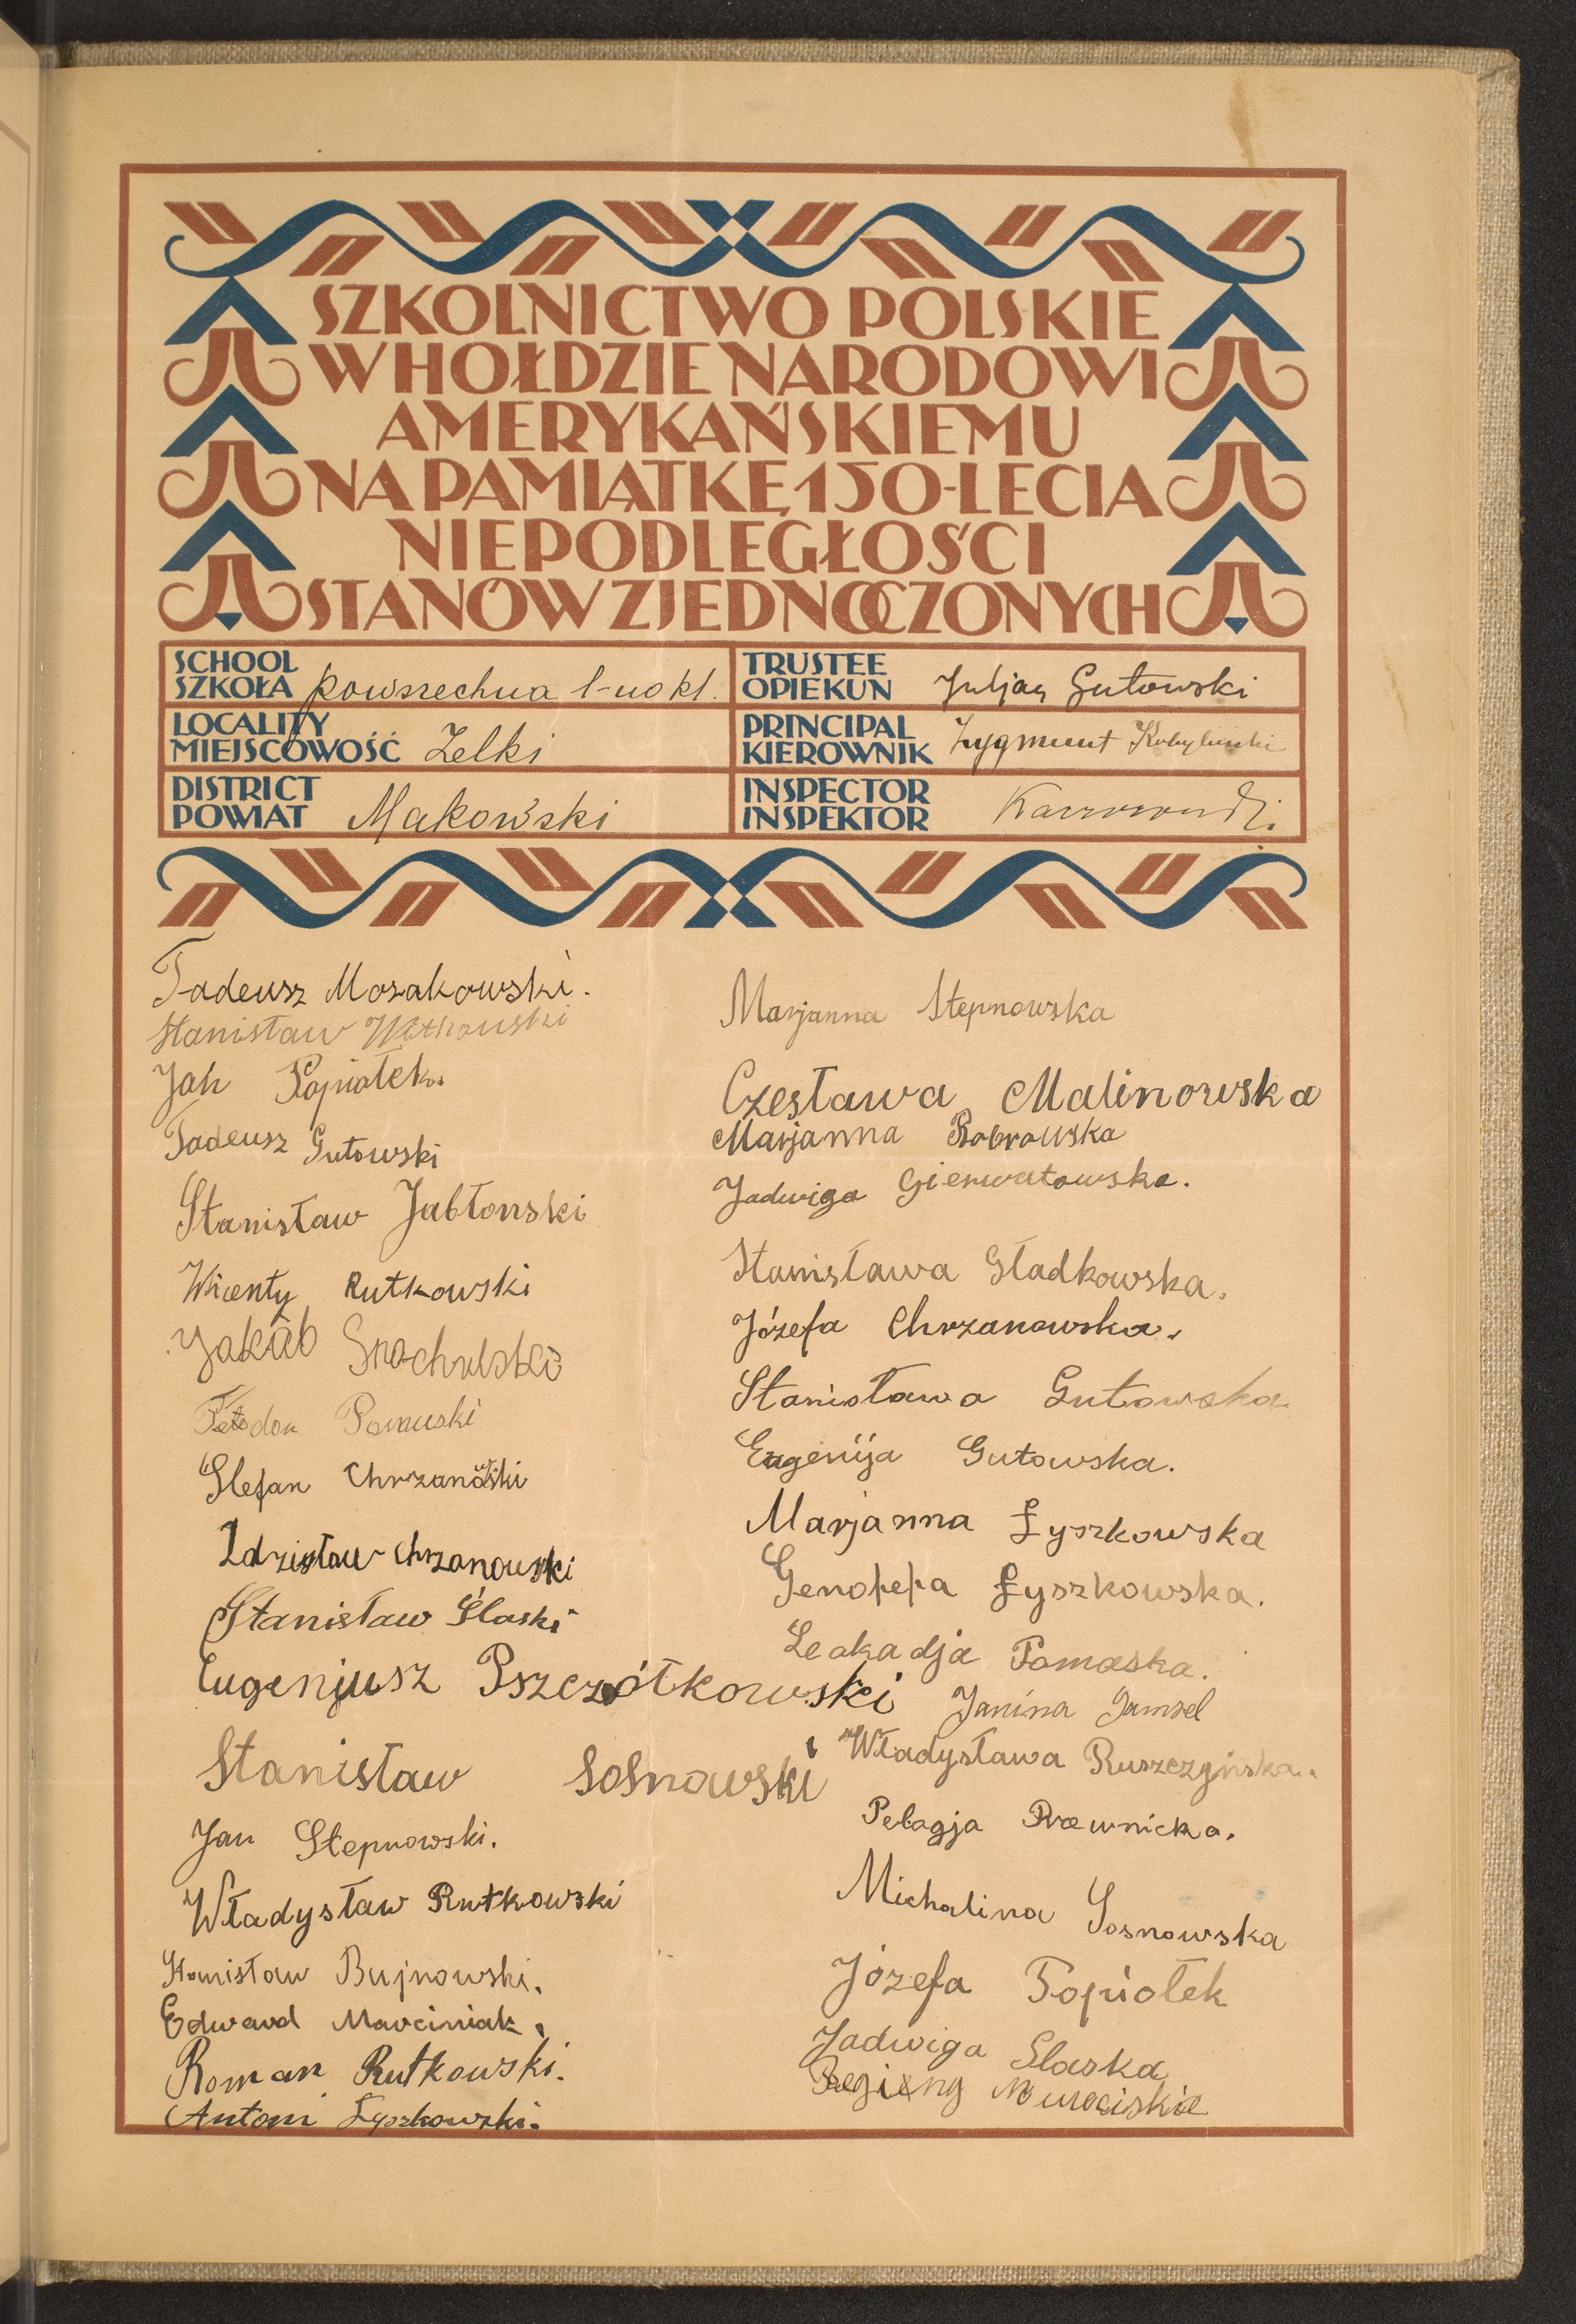 SZKOLNICTWO POLSKIE
W HOŁDZIE NARODOWI
AMERYKAŃSKIEMU
NA PAMIĄTKĘ 150-LECIA
NIEPODLEGŁOŚCI
STANÓW ZJEDNOCZONYCH
SCHOOL
SZKOŁA powszechna 1-no kl.
LOCALITY
MIEJSCOWOŚĆ Zelki
DISTRICT
POWIAT Makowski
TRUSTEE
OPIEKUN Juljan Gutowski
PRINCIPAL
KIEROWNIK Zygmunt
INSPECTOR
INSPEKTOR
Tadeusz Mozakowski.
Stanisław
Jan Popiołek.
Tadeusz Gutowski
Stanisław Jabłonski
Wicenty Rutkowski
Jakub
Stefan Chrzanowski
Zdzisław Chrzanowski
Stanisław Ślaski
Eugenjusz Pszczółkowski
Stanisław Sosnowski
Jan Stepnowski.
Władysław Rutkowski
Stanisław Bujnowski.
Edward Marciniak.
Roman Rutkowski.
Antoni Łyszkowski.
Marjanna Stepnowska
Czesława Malinowska
Marjanna Bobrowska
Jadwiga Gierwatowska.
Stanisława Gładkowska.
Józefa Chrzanowska.
Stanisława Gutowska
Eugenija Gutowska.
Marjanna Łyszkowska
Genofefa Łyszkowska.
Leokadja Pomaska.
Janina Damsel
Władysława Ruszczyńska.
Pelagja
Michalina Sosnowska
Józefa Popiołek
Jadwiga Slaska